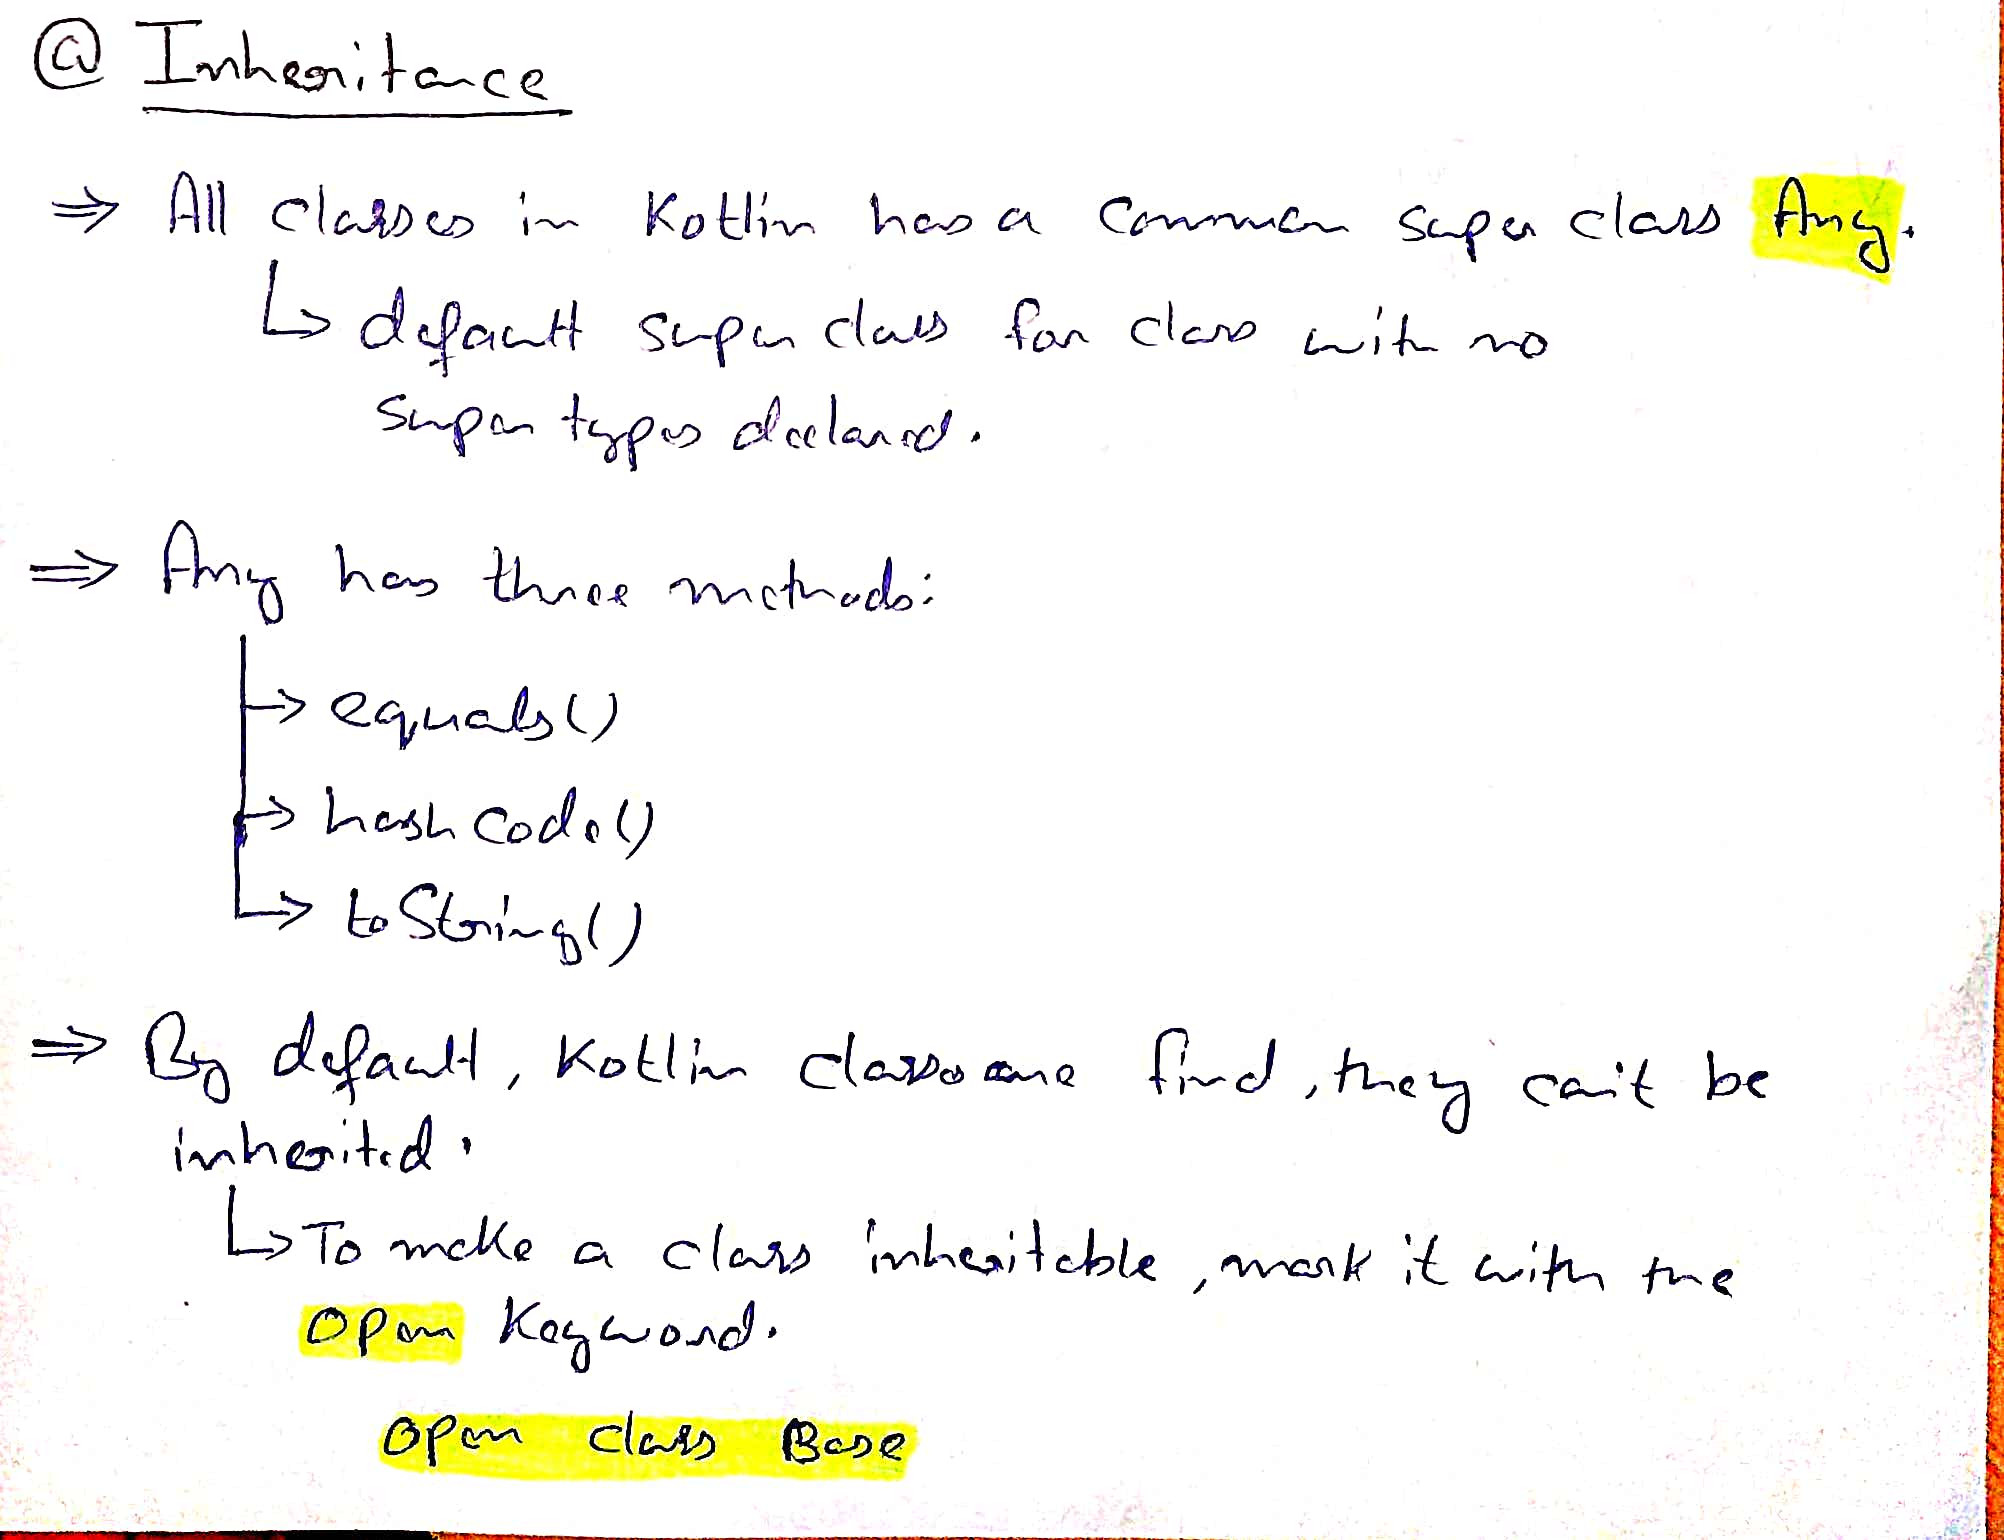 @ Inheritance
⇒ All classes in Kotlin has a common super class Any.
↳ default super class for class with no
super types declared.
⇒ Any has three methods:
→ equals()
→ hashCode()
→ toString()
⇒ By default, Kotlin classes are final, they can't be
inherited.
↳ To make a class inheritable, mark it with the
open keyword.
open class Base